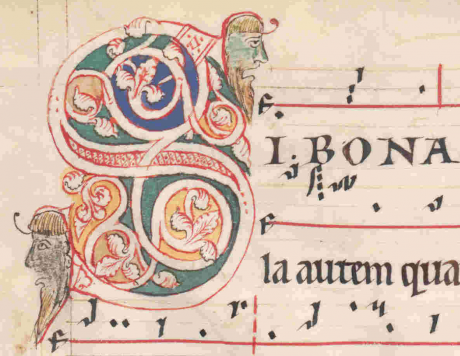 SI BONA
la autem qua